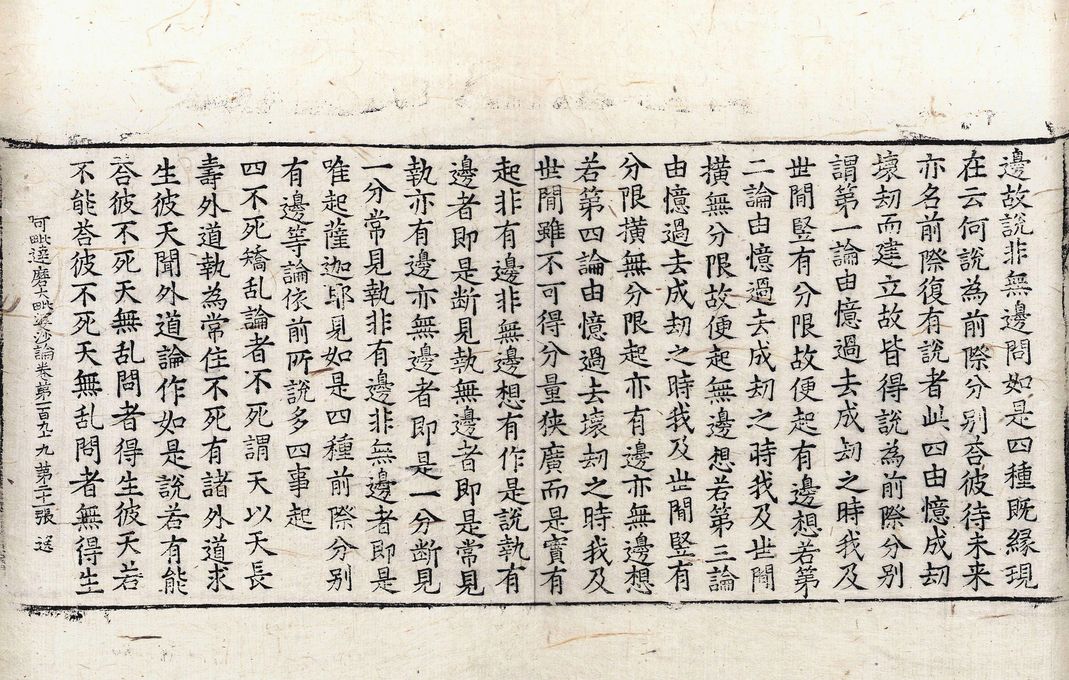 邊故說非無邊問如是四種既緣現
在云何說為前際分別荅彼待未来
亦名前際復有說者此四由憶成刼
壞刼而建立故皆得說為前際分別
謂第一論由憶過去成刼之時我及
世閒竪有分限故便起有邊想若第
二論由憶過去成刼之時我及世閒
撗無分限故便起無邊想若第三論
由憶過去成刼之時我及世閒竪有
分限撗無分限起亦有邊亦無邊想
若第四論由憶過去壞刼之時我及
世閒雖不可得分量狹廣而是實有
起非有邊非無邊想有作是說執有
邊者即是断見執無邊者即是常見
執亦有邊亦無邊者即是一分断見
一分常見執非有邊非無邊者即是
唯起薩迦耶見如是四種前際分別
有邊等論依前所說多四事起
四不死矯乱論者不死謂天以天長
壽外道執為常住不死有諸外道求
生彼天聞外道論作如是說若有能
荅彼不死天無乱問者得生彼天若
不能荅彼不死天無乱問者無得生
阿毗達磨大毗婆沙論卷第一百九十九 第二十張 送